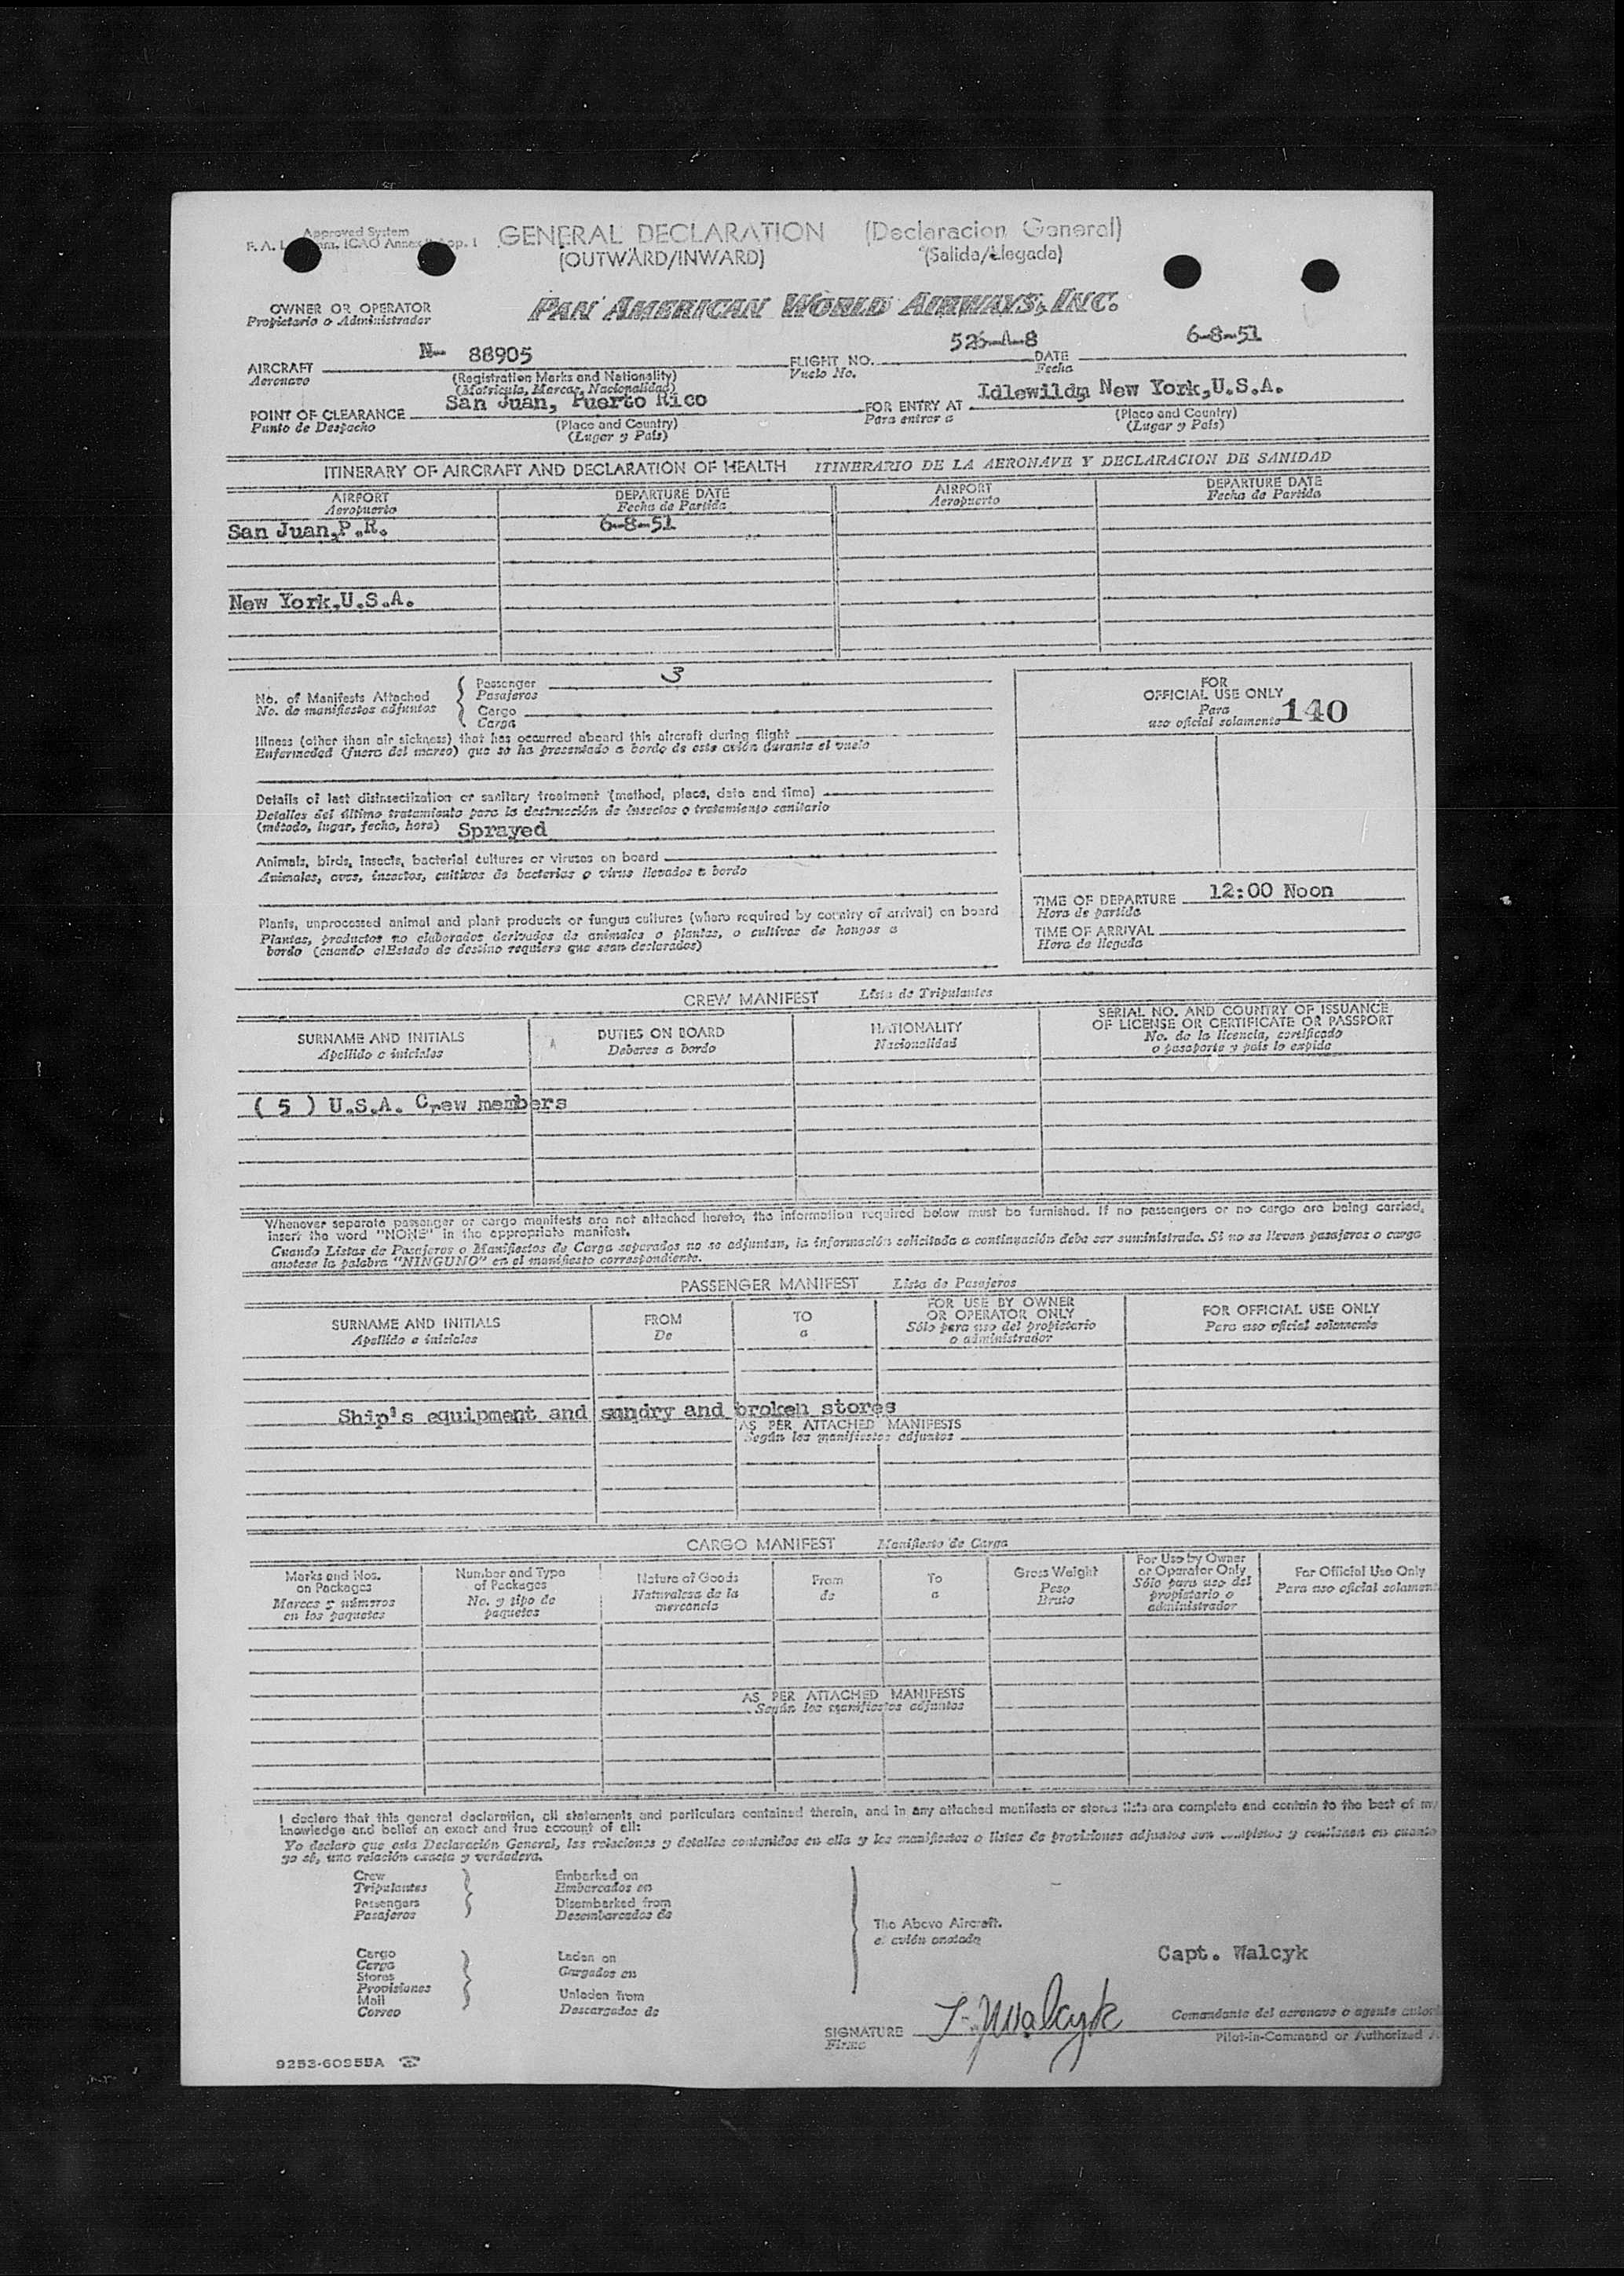 Approved System
F. A. L. ICAO Annex App. 1
GENERAL DECLARATION (Declaracion General)
(OUTWARD/INWARD) (Salida/Llegada)
OWNER OR OPERATOR
Propietario o Administrador
PAN AMERICAN WORLD AIRWAYS, INC.
AIRCRAFT N- 88905 FLIGHT NO. 526-A-8 DATE 6-8-51
Aeronave Vuelo No. Fecha
(Registration Marks and Nationality)
(Matricula, Marcas, Nacionalidad)
POINT OF CLEARANCE San Juan, Puerto Rico FOR ENTRY AT Idlewild, New York,U.S.A.
Punto de Despacho (Place and Country) Para entrar a (Place and Country)
(Lugar y País) (Lugar y País)
ITINERARY OF AIRCRAFT AND DECLARATION OF HEALTH ITINERARIO DE LA AERONAVE Y DECLARACION DE SANIDAD
AIRPORT DEPARTURE DATE AIRPORT DEPARTURE DATE
Aeropuerto Fecha de Partida Aeropuerto Fecha de Partida
San Juan,P.R. 6-8-51
New York,U.S.A.
No. of Manifests Attached Passenger 3
No. de manifiestos adjuntos Pasajeros
Cargo
Carga
FOR
OFFICIAL USE ONLY
Para
uso oficial solamente 140
Illness (other than air sickness) that has occurred aboard this aircraft during flight
Enfermedad (fuera del mareo) que se ha presentado a bordo de este avión durante el vuelo
Details of last disinsectization or sanitary treatment (method, place, date and time)
Detalles del último tratamiento para la destrucción de insectos o tratamiento sanitario
(método, lugar, fecha, hora) Sprayed
Animals, birds, insects, bacterial cultures or viruses on board
Animales, aves, insectos, cultivos de bacterias o virus llevados a bordo
Plants, unprocessed animal and plant products or fungus cultures (where required by country of arrival) on board
Plantas, productos no elaborados derivados de animales o plantas, o cultivos de hongos a
bordo (cuando el Estado de destino requiera que sean declarados)
TIME OF DEPARTURE 12:00 Noon
Hora de partida
TIME OF ARRIVAL
Hora de llegada
CREW MANIFEST Lista de Tripulantes
SURNAME AND INITIALS DUTIES ON BOARD NATIONALITY SERIAL NO. AND COUNTRY OF ISSUANCE
OF LICENSE OR CERTIFICATE OR PASSPORT
Apellido e iniciales Deberes a bordo Nacionalidad No. de la licencia, certificado
o pasaporte y país lo expide
( 5 ) U.S.A. Crew members
Whenever separate passenger or cargo manifests are not attached hereto, the information required below must be furnished. If no passengers or no cargo are being carried,
insert the word "NONE" in the appropriate manifest.
Cuando Listas de Pasajeros o Manifiestos de Carga separados no se adjuntan, la información solicitada a continuación debe ser suministrada. Si no se llevan pasajeros o carga
anotese la palabra "NINGUNO" en el manifiesto correspondiente.
PASSENGER MANIFEST Lista de Pasajeros
SURNAME AND INITIALS FROM TO FOR USE BY OWNER
OR OPERATOR ONLY FOR OFFICIAL USE ONLY
Apellido e iniciales De a Sólo para uso del propietario
o administrador Para uso oficial solamente
Ship's equipment and sundry and broken stores
AS PER ATTACHED MANIFESTS
Según los manifiestos adjuntos
CARGO MANIFEST Manifiesto de Carga
Marks and Nos.
on Packages
Marcas y números
en los paquetes
Number and Type
of Packages
No. y tipo de
paquetes
Nature of Goods
Naturaleza de la
mercancía
From
de
To
a
Gross Weight
Peso
Bruto
For Use by Owner
or Operator Only
Sólo para uso del
propietario o
administrador
For Official Use Only
Para uso oficial solamen
AS PER ATTACHED MANIFESTS
Según los manifiestos adjuntos
I declare that this general declaration, all statements and particulars contained therein, and in any attached manifests or stores lists are complete and contain to the best of my
knowledge and belief an exact and true account of all:
Yo declaro que esta Declaración General, las relaciones y detalles contenidos en ella y los manifiestos o listas de provisiones adjuntos son completos y contienen en cuanto
yo sé, una relación exacta y verdadera.
Crew Embarked on
Tripulantes Embarcados en
Passengers Disembarked from
Pasajeros Desembarcados de
The Above Aircraft.
el avión anotado
Cargo Laden on
Carga Cargados en
Stores
Provisiones
Mail Unladen from
Correo Descargados de
Capt. Walcyk
SIGNATURE J. Walcyk
Firma
Comandante del aeronave o agente autori
Pilot-in-Command or Authorized A
9253-6095BA